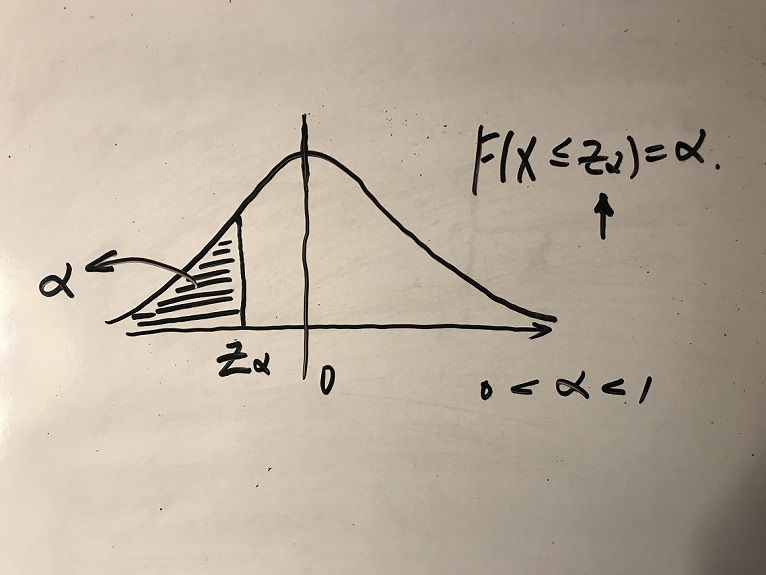 F(X ≤ Zα) = α.
α
Zα
0
0 < α < 1